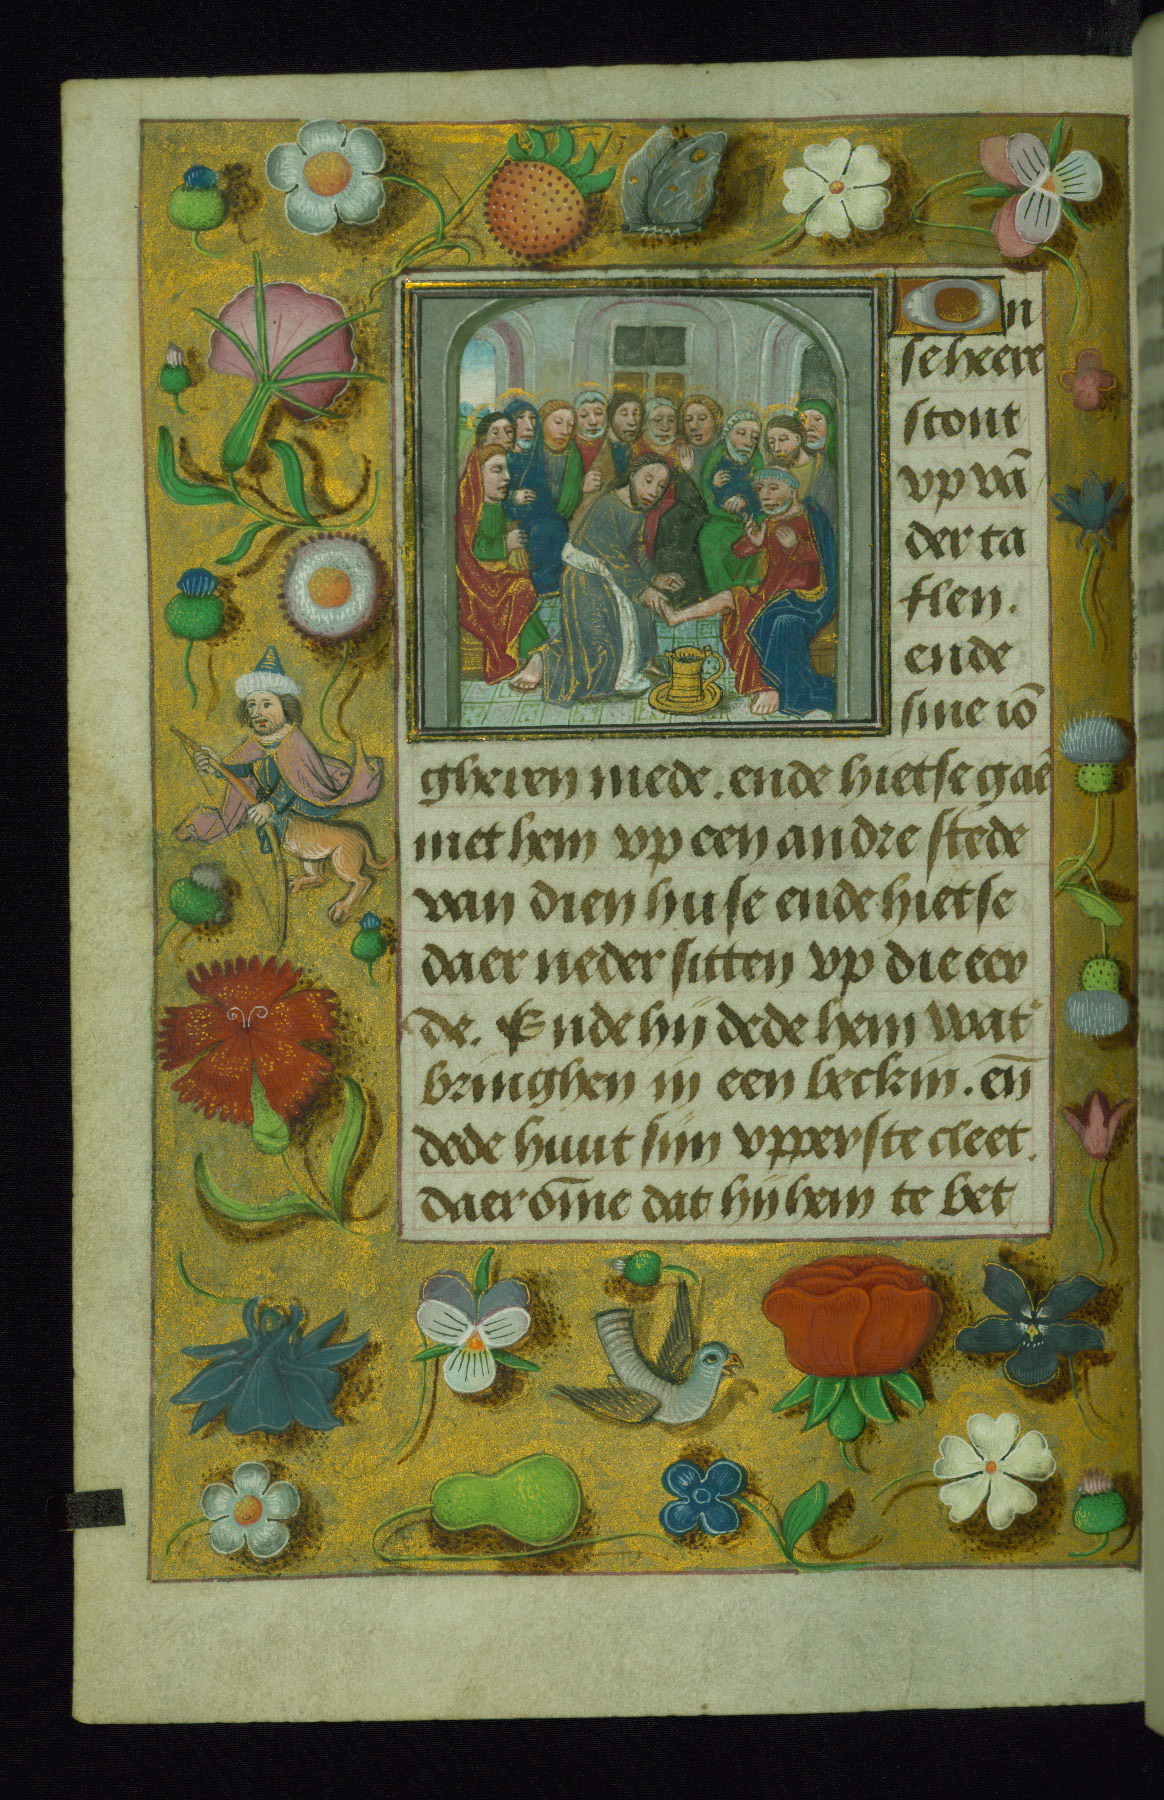 On
se heere
stont
vp vā
der ta
flen.
ende
sine iō
gheren mede. ende hietse gaē
met hem vp een andre stede
van dien huse ende hietse
daer neder sitten vp die eer
de. Ende hij dede hem wat᾽
bringhen in een beckin. eñ
dede huut sijn vpperste cleet.
daer ōme dat hij hem te bet